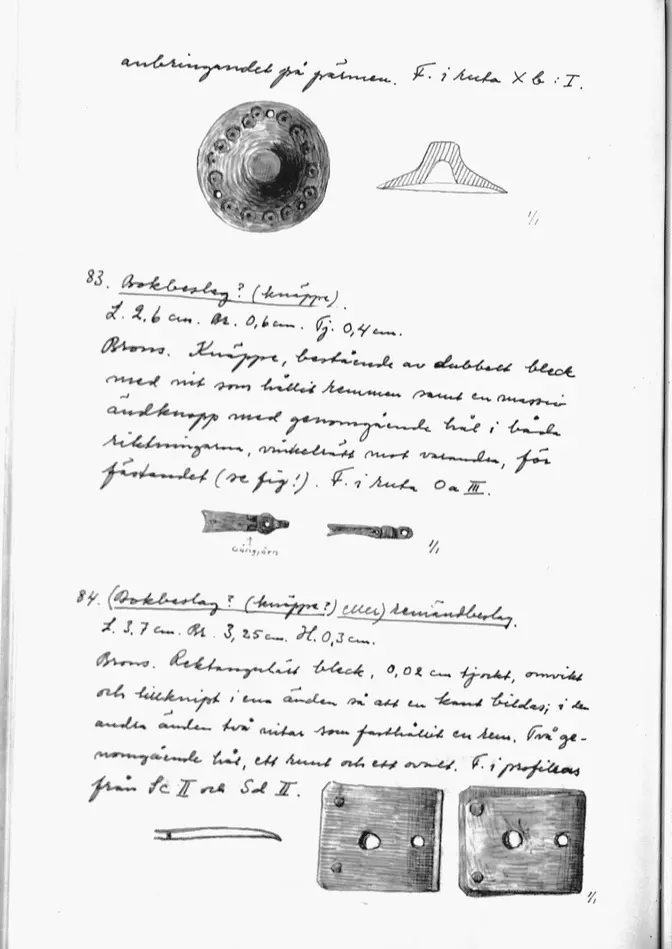 anbringandet på pärmen. F. i ruta X b : I.
1/1
83. Bokbeslag? (knäppe).
L. 2,6 cm. Br. 0,6 cm. Tj. 0,4 cm.
Brons. Knäppe, bestående av dubbelt bleck
med nit som hållit remmen samt en massiv
ändknopp med genomgående hål i båda
riktningarna, vinkelrätt mot varandra, för
fästandet (se fig!). F. i ruta O a III.
1/1
Gångjärn
84. (Bokbeslag? (knäppe?) eller) remändbeslag.
L. 3,7 cm. Br. 3,25 cm. H. 0,3 cm.
Brons. Rektangulärt bleck, 0,02 cm tjockt, omvikt
och tillknipt i ena änden så att en kant bildas; i den
andra änden två nitar som fasthållit en rem. Två ge-
nomgående hål, ett runt och ett ovalt. F. i profilens
från Sc II och Sd II.
1/1